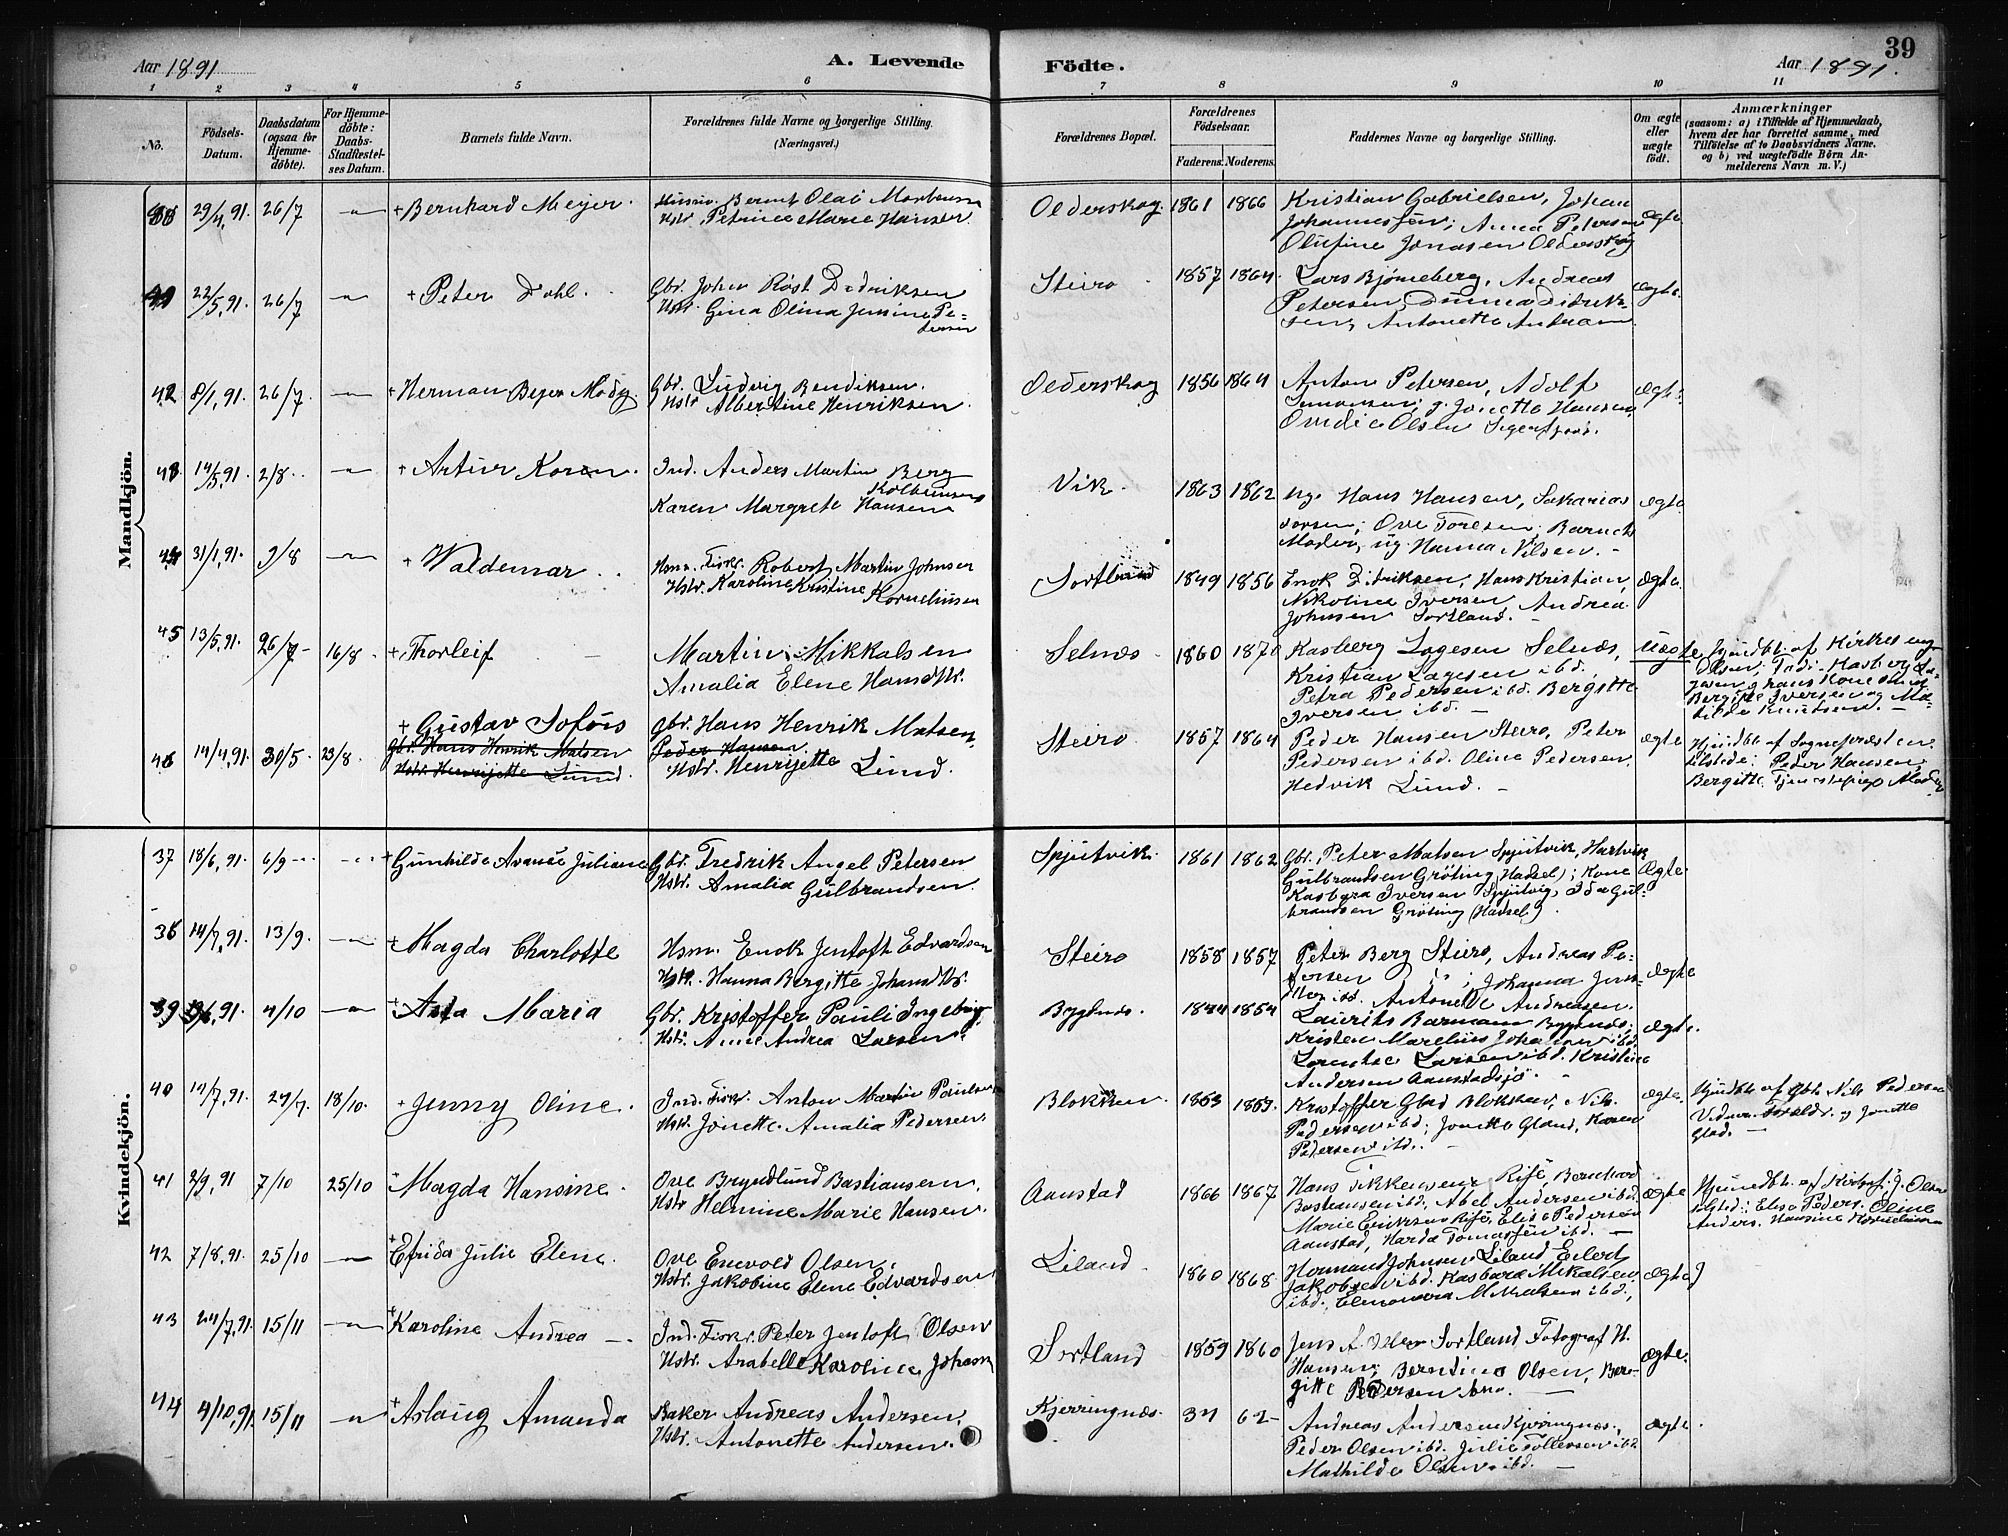 39
Aar 1891
A. Levende
Födte.
Aar 1891.
1 2 3 4 5 6 7 8 9 10 11
No.
Födsels-Datum.
Daabsdatum (ogsaa for Hjemmedöbte).
For Hjemmedöbte: Daabs-Stadfæstelses Datum.
Barnets fulde Navn.
Forældrenes fulde Navne og borgerlige Stilling.
(Næringsvei.)
Forældrenes Bopæl.
Forældrenes Födselsaar.
Faderens. Moderens.
Faddernes Navne og borgerlige Stilling.
Om ægte eller uægte födt.
Anmærkninger
(saasom: a) i Tilfælde af Hjemmedaab, hvem der har forrettet samme, med Tilföielse af to Daabsvidners Navne. og b) ved uægtefödte Börn Anmelderens Navn m. V.)
Mandkjön.
29/4, 91. 26/7 — + Bernhard Meyer.
Bernt Olai
Hstr. Petrine Marie Hansen
Olderskog 1861 1866
Kristian Gabrielsen, Johan
Johannessen; Anna Petersen
Olufine Jonasen Olderskog
Ægte.
22/5, 91. 26/7 — + Peter Dahl.
Gbr. Johan Röst Didriksen
Hstr. Gina Olina Jensine Pe-
tersen
Steiro 1857 1864.
Lars Bjørneberg, Andreas
Petersen,
sen, Antonette
ægte.
42 8/1, 91. 26/7 — + Herman Beyer
Gbr. Ludvig Bendiksen.
Hstr Albertine Henriksen
Olderskog 1856 1864
Anton Petersen, Adolf
g. Jonette Hansen,
Olsen
ægte.
43 14/5, 91. 2/8 — + Artur Koren.
Ind. Anders Martin Berg
Kolbeinsen
Karen Margrete Hansen
Vik 1863 1862
Ug. Hans Hansen, Sakarias
Ove Toresen; Barnets
Moder, ug. Hanna Nilsen.
ægte.
44 31/1, 91. 9/8 — + Waldemar
Hsm. Fisker. Robert Martin Johnsen
Hstr. Karoline Kristine
Kornelinsen
Sortland 1849 1856
Enok Didriksen, Hans Kristian,
Nikolina Iversen, Andrea
Johnsen Sortland.
ægte.
45 13/5, 91. 26/7 16/8 + Thorleif
Martin Mikkalsen
Amalia Elene Hansdtr.
Selnæs 1860 1870
Kasberg Lagesen Selnæs,
Kristian Lagesen ibd.
Petra Pedersen ibd. Bergitte
Iversen ibd.
Uægte
Hjemdbt. af Kirkesanger
Olsen;
Bergitte Iversen og Ma-
tilde Knudsen.
46 14/4, 91. 30/5 23/8. + Gustav Sofus
Gbr. Hans Henrik Matsen
Hstr. Henrijette Lund.
Gbr. Hans Henrik Matsen,
Peder Hansen.
Hstr. Henrijette Lund.
Steiro 1857 1864
Peder Hansen Steiro, Peter
Pedersen ibd. Oline Pedersen,
Hedvik Lund.
ægte
Hjemdbt. af Sognepræsten.
Tilstede: Peder Hansen,
Bergitte
Kvindekjön.
37 18/6, 91. 6/9 + Gunhilde Avanse Juliane
Gbr. Fredrik Angel Petersen
Hstr. Amalia Gulbrandsen
Spjutvik. 1861 1862
Gbr. Peter Matsen Spjutvik, Hartvik
Gulbrandsen Grøting (Hadsel); Kone
Kasbara Iversen Spjutvig, Ida Gul-
brandsen Grøting (Hadsel).
Ægte
38 14/7, 91. 13/9. — + Magda Charlotte
Hsm. Enok Jentoft Edvardsen
Hstr. Hanna Bergitte Johansdtr.
Steiro 1858 1857
Peter Berg Steiro, Andreas Pe-
tersen ; Johanna
ibd. Antonette Andreasen.
Ægte
39 91. 4/10 — + Asta Maria
Gbr. Kristoffer Pauli Ingebrig
Hstr. Anne Andrea Larsen
Bygtnæs. 1844 1854
Laurits Barmann Bygtnæs;
Kristen Marelius Johansen ibd.
Lorentse Larsen ibd. Kristine
Andersen Aanstadsjø.
Ægte.
40 14/7, 91. 24/7. 18/10. + Jenny Oline.
Ind. Fisker. Anton Martin Paulsen
Hstr. Jonette Amalia Pedersen.
Blokken. 1863 1869.
Kristoffer Glad Blokken, Nils
Pedersen ibd; Jonette Glad, Karen
Pedersen ibd.
ægte.
Hjemdbt. af Gbr. Nils Pedersen
Jonette
Glad.
41 2/9, 91 7/10 25/10 + Magda Hansine.
Ove Bryndlund Bastiansen.
Hstr Helmine Marie Hansen.
Aanstad 1866 1867
Hans Rise, Bernhard
Bastiansen ibd, Abel Andersen ibd.
Marie Eriksen Rise, Elise Pedersen
Aanstad, Harda Tomassen ibd.
ægte
Hjemdbt. af J. Olsen
Elise Peders. Oline
Anders. Hansine
42 7/8, 91. 25/10 — + Efrida Julie Elene.
Ove Enevold Olsen.
Hstr. Jakobine Elene Edvardsen
Liland. 1860 1868
Hormand Johnsen Liland Eilert
Jakobsen ibd. Kasbara Mikalsen
ibd., Elenonora Mikalsen ibd.
ægte
43 24/7, 91. 15/11 — + Karoline Andrea
Ind. Fisker. Peter Jentoft Olsen
Hstr. Arabelle Karoline Johansen
Sortland 1859 1860
Jens A. Olsen Sortland, Fotograf H.
Hansen; Berntine Olsen, Ber-
gitte Pedersen
ægte.
44 4/10, 91. 15/11 — + Aslaug Amanda
Baker Andreas Andersen,
Hstr. Antonette Andersen.
Kjerringnæs. 34 62
Andreas Andersen Kjerringnæs,
Peder Olsen ibd. Julie Tollersen ibd.
Mathilde Olsen ibd.
ægte